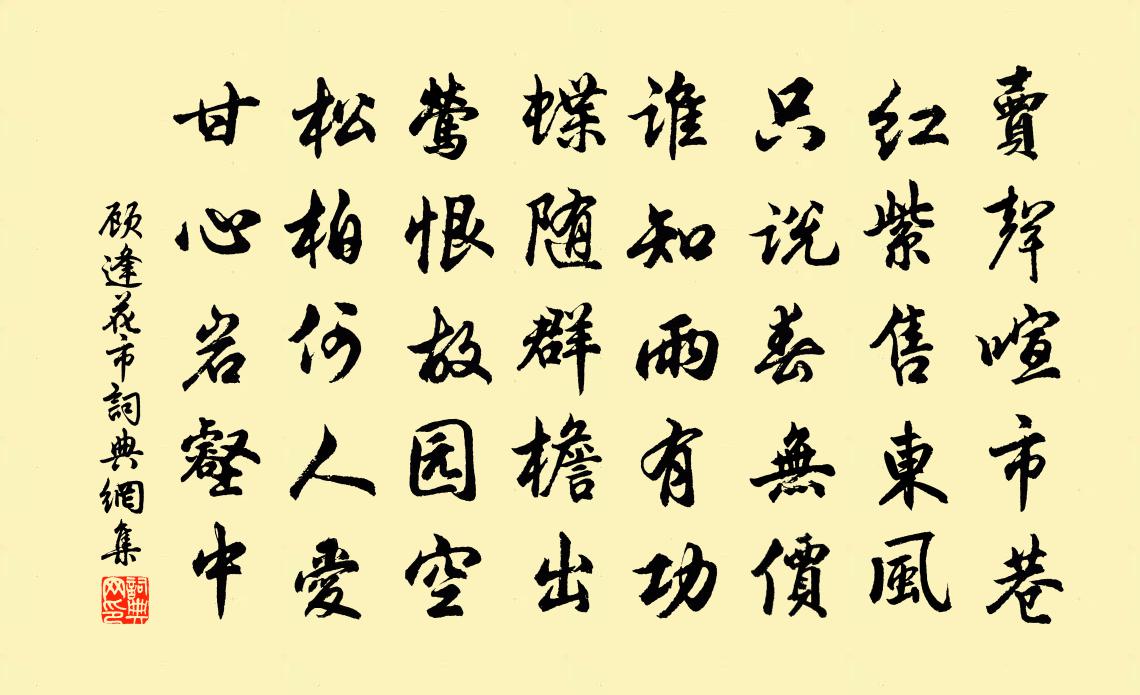 賣聲喧市巷
红紫售東風
只说春無價
谁知雨有功
蝶随群檐出
莺恨故园空
松柏何人愛
甘心岩壑中
顾逢花市詞典網集
詞典网印